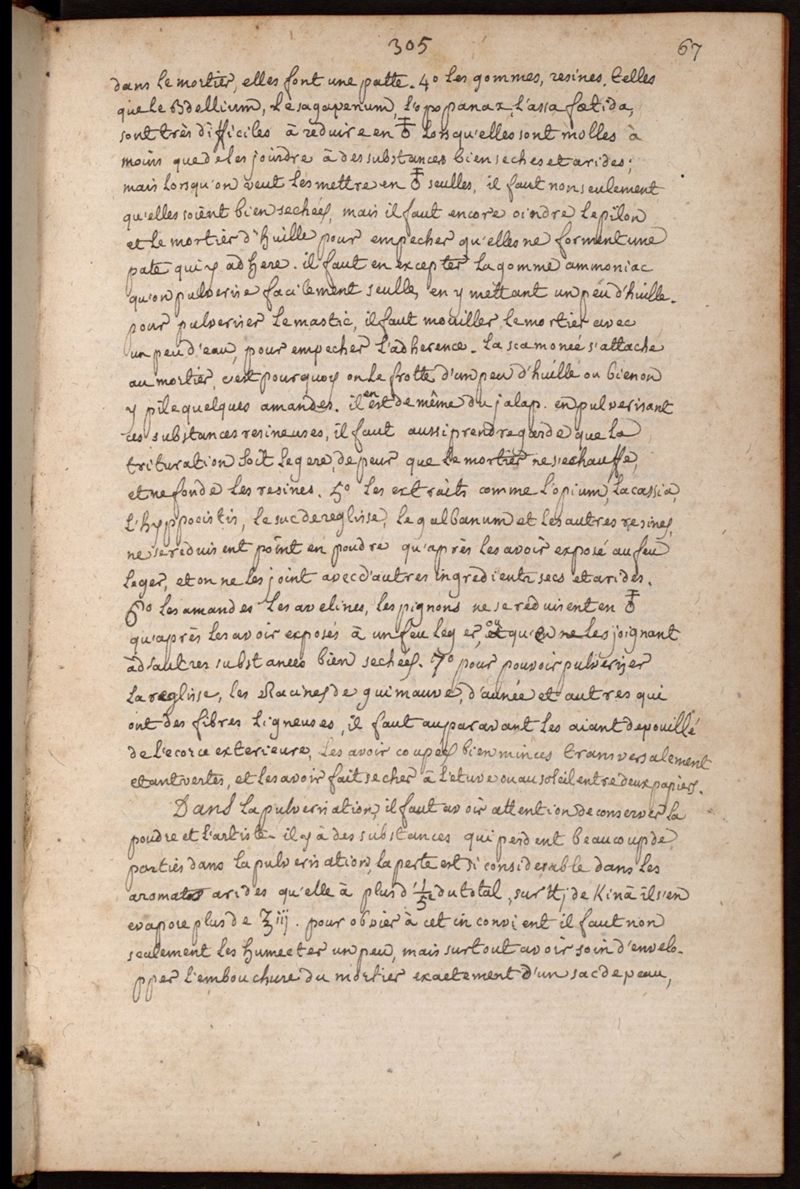 305 67
dans le mortier, elles font une patte. 4º les gommes, resines, telles
que le Bdellium, le sagapenum, l'opopanax, l'assa foetida,
sont très difficiles à reduire en ♁ lorsqu'elles sont molles à
moins que de les joindre à des substances bien seches et arides;
mais lorsqu'on veut les mettre en ♁ seulles, il faut non seulement
qu'elles soient bien sechées, mais il faut encore oindre le pilon
et le mortier d'huille pour empecher qu'elles ne forment une
pate qui y adhere. il faut en excepter la gomme ammoniac
qu'on pulverise facilement seulle, en y mettant un peu d'huille.
pour pulveriser le mastic, il faut mouiller le mortier avec
un peu d'eau, pour empecher l'adherence. la scamonée s'attache
au mortier, c'est pourquoy on le frotte d'un peu d'huille ou bien on
y pile quelques amandes. il en est de même du jalap. en pulverisant
ces substances resineuses, il faut aussi prendre garde que la
trituration soit legere, de peur que le mortier ne s'echauffe,
et ne fonde les resines. 5º les extraits comme l'opium, la cassia,
l'hyppocistis, le suc de reglisse, le galbanum et les autres resines,
ne se reduisent point en poudre qu'après les avoir exposé au feu
leger, et on ne les joint avec d'autres ingredients secs et arides.
6º les amandes les avelines, les pignons ne se reduisent en ♁
qu'après les avoir exposés à un feu leger, ou qu'en ne les joignant
à d'autres substances bien sechées. 7º pour pouvoir pulveriser
la reglisse, les Racines de guimauve, d'aunée et autres qui
ont des fibres ligneuses, il faut auparavant les aiant depouillé
de l'ecorce exterieure, les avoir coupés bien minces transversalement
etant vertes, et les avoir fait secher à l'etuve ou au soleil entre deux papiers.
Dans la pulverisation, il faut avoir attention de conserver la
poudre et l'artiste. il y à des substances qui perdent beaucoup de
parties dans la pulverisation, la perte est si considerable dans les
aromates arides qu'elle à plus d'1/5e du total, sur ℔j de Kina il s'en
evapore plus de ℥iij. pour obvier à cet inconvient il faut non
seulement les humecter un peu, mais surtout avoir soin d'envelo-
pper l'embouchure du mortier exactement d'un sac de peau,